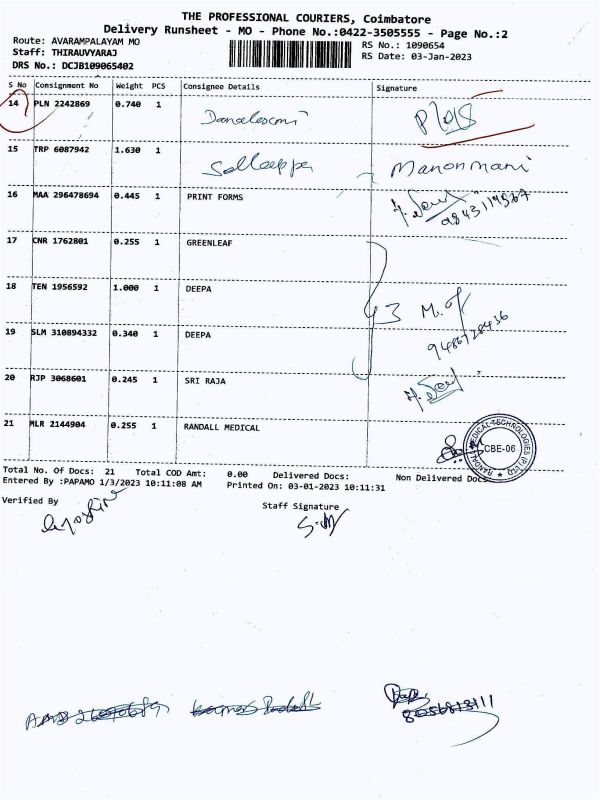 THE PROFESSIONAL COURIERS, Coimbatore
Delivery Runsheet - MO - Phone No.:0422-3505555 - Page No.:2
Route: AVARAMPALAYAM MO
Staff: THIRAUVYARAJ
DRS No.: DCJB109065402
RS No.: 1090654
RS Date: 03-Jan-2023
S No Consignment No Weight PCS Consignee Details Signature
14 PLN 2242869 0.740 1
15 TRP 6087942 1.630 1 Manonmani
16 MAA 296478694 0.445 1 PRINT FORMS
17 CNR 1762801 0.255 1 GREENLEAF
18 TEN 1956592 1.000 1 DEEPA
19 SLM 310894332 0.340 1 DEEPA
20 RJP 3068601 0.245 1 SRI RAJA
21 MLR 2144904 0.255 1 RANDALL MEDICAL
CBE-06
Total No. Of Docs: 21 Total COD Amt: 0.00 Delivered Docs: Non Delivered Docs
Entered By :PAPAMO 1/3/2023 10:11:08 AM Printed On: 03-01-2023 10:11:31
Verified By
Staff Signature